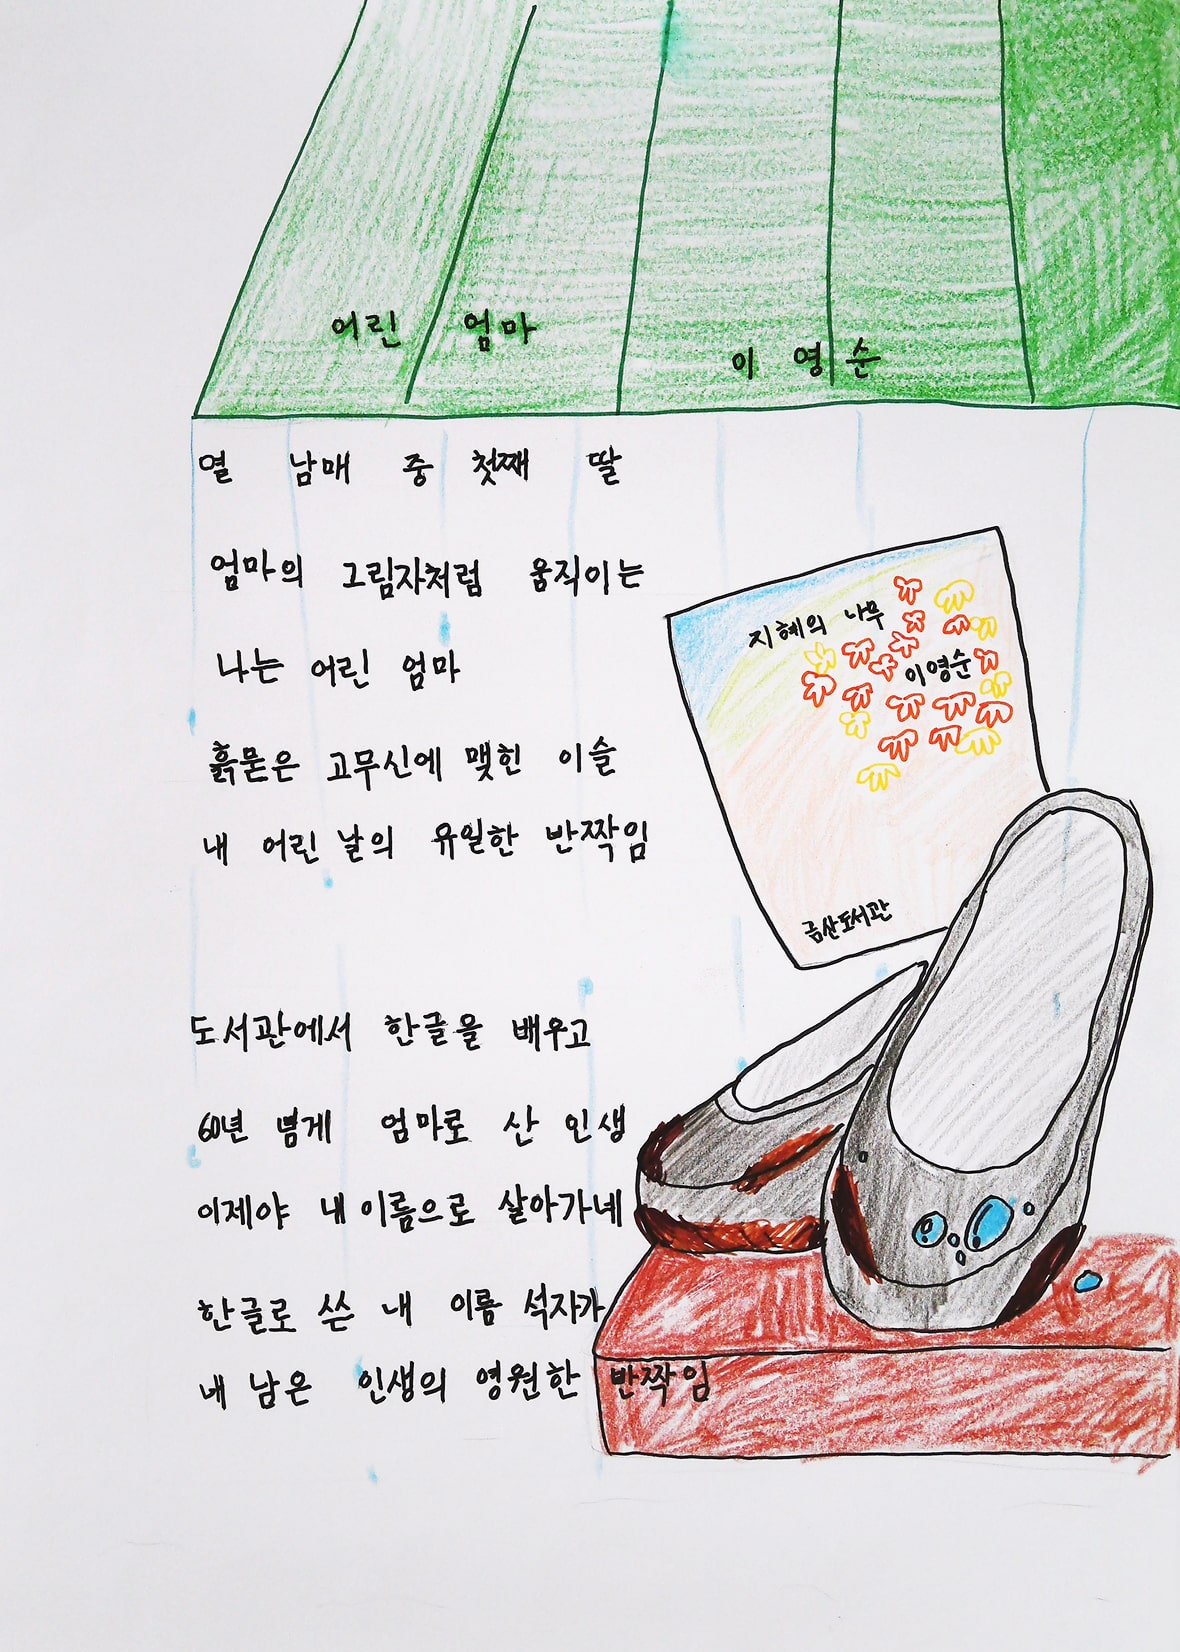 어린 엄마
이영순
열 남매 중 첫째 딸
엄마의 그림자처럼 움직이는
나는 어린 엄마
흙묻은 고무신에 맺힌 이슬
내 어린 날의 유일한 반짝임
지혜의 나무
이영순
금산도서관
도서관에서 한글을 배우고
60년 넘게 엄마로 산 인생
이제야 내 이름으로 살아가네
한글로 쓴 내 이름 석자가
내 남은 인생의 영원한 반짝임